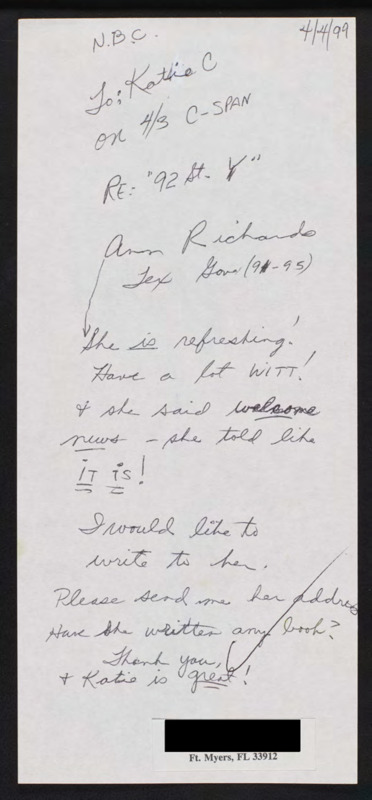 4/4/99
N.B.C.
To: Katie C
on 4/3 C-SPAN
RE: "92 St. Y"
Ann Richards
Tex Gov. (91-95)
She is refreshing!
Have a lot WITT!
& she said welcome
news - she told like
IT is!
I would like to
write to her.
Please send me her address
Have she written any book?
Thank you,
& Katie is great!
Ft. Myers, FL 33912